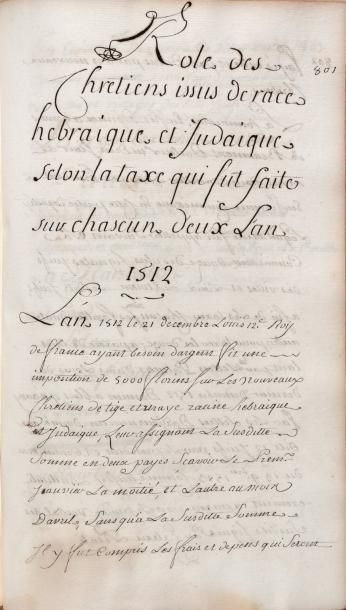 Role des
801
Chretiens issus de race
hebraique et Judaique
selon la taxe qui fut faite
sur chascun deux L'an
1512
L'an 1512 le 21 decembre Louis 12.e Roy
de france ayant besoin d'argent fit une
imposition de 5000 florins sur Les nouveaux
Chretiens de tige et vraye racine hebraique
et Judaique, Leur assignant La Susditte
Somme en deux payes Scavoir Le Prem.r
Janvier La moitié et L'autre au mois
D'avril, Sans qu'a La Susditte Somme
Il y fut Compris Les frais et depens qui Seront